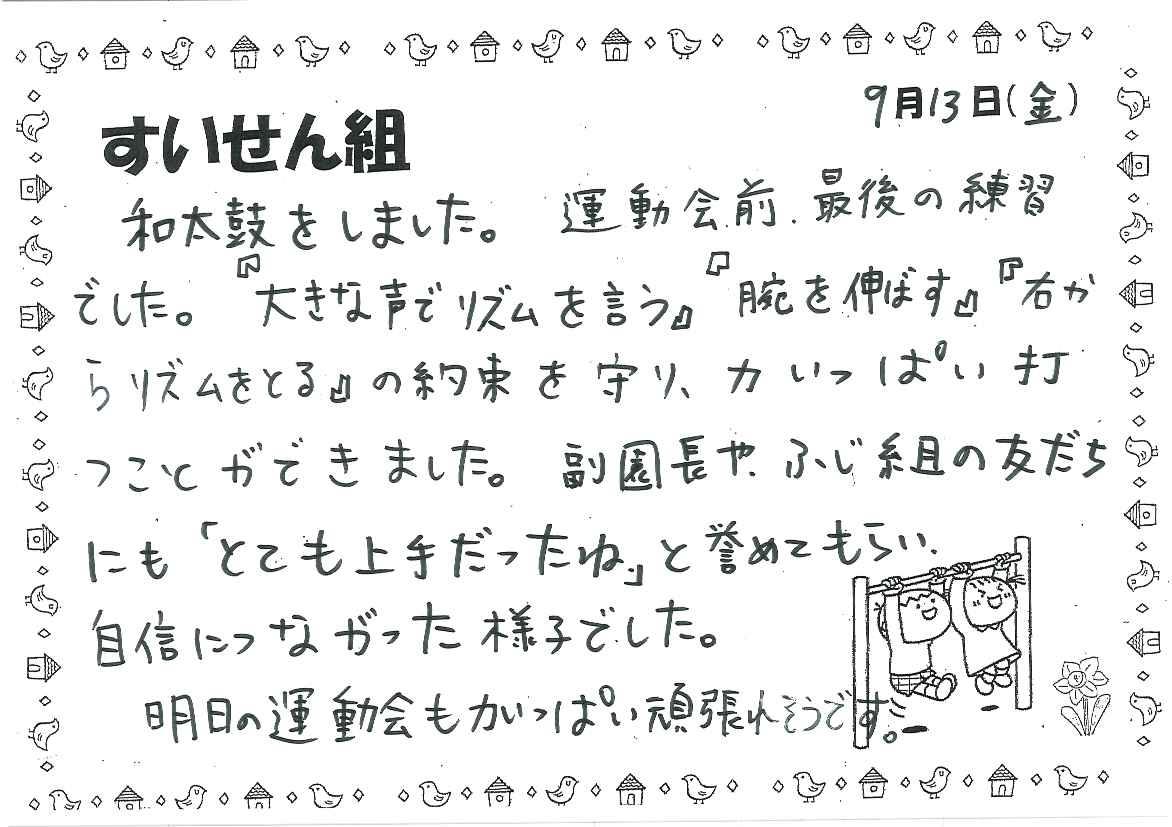 9月13日(金)
すいせん組
和太鼓をしました。 運動会前、最後の練習
でした。『大きな声でリズムを言う』『腕を伸ばす』『右か
らリズムをとる』の約束を守り、力いっぱい打
つことができました。 副園長や、ふじ組の友だち
にも「とても上手だったね。」と誉めてもらい、
自信につながった様子でした。
明日の運動会も力いっぱい頑張れそうです。